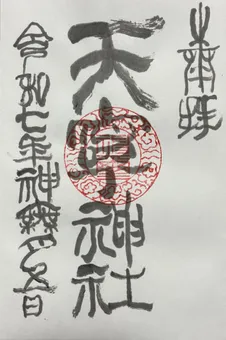 奉拝
天宮神社
令和七年神無月吉日